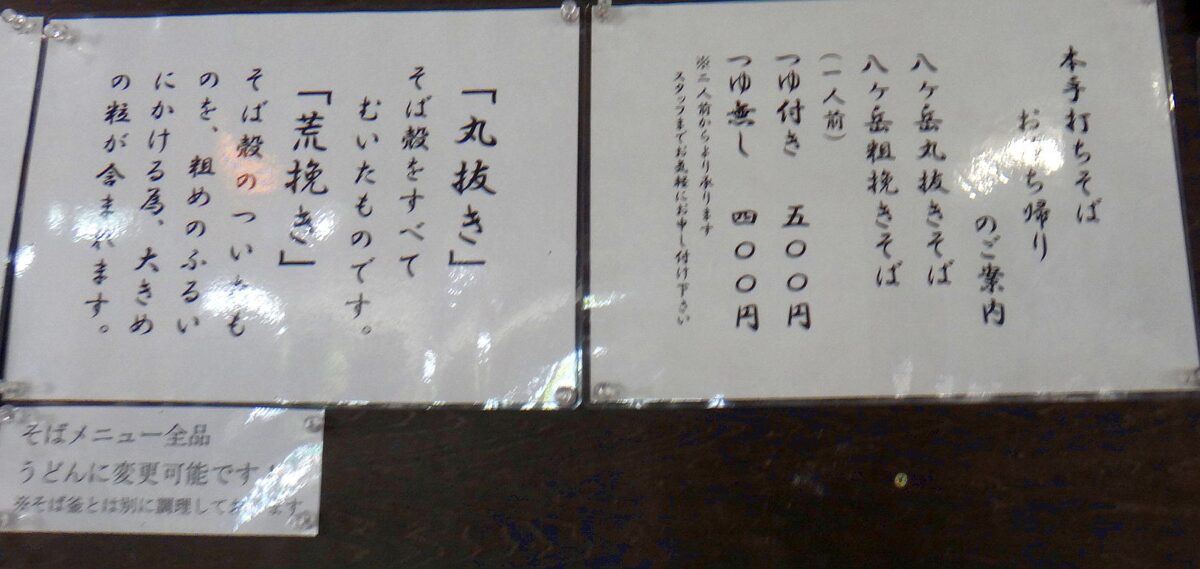 本手打ちそば
お持ち帰り
のご案内
八ヶ岳丸抜きそば
八ヶ岳粗挽きそば
（一人前）
つゆ付き 五〇〇円
つゆ無し 四〇〇円
※二人前からより承ります
スタッフまでお気軽にお申し付け下さい
「丸抜き」
そば殻をすべて
むいたものです。
「荒挽き」
そば殻のついたも
のを、粗めのふるい
にかける為、大きめ
の粒が含まれます。
そばメニュー全品
うどんに変更可能です！
※そば釜とは別に調理しております